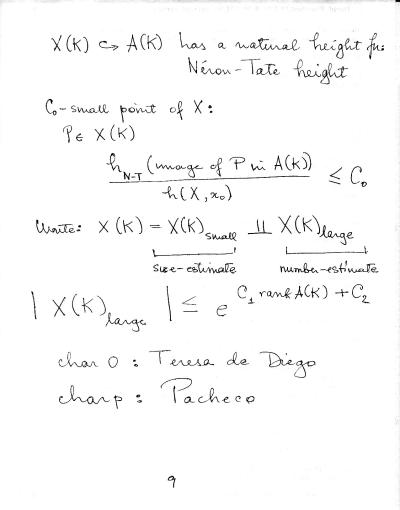 X(K) ↪ A(K) has a natural height fn:
Néron-Tate height
C₀-small point of X:
P ∈ X(K)
h_{N-T} (image of P in A(K)) / h(X, x₀) ≤ C₀
Write: X(K) = X(K)_{small} ⨿ X(K)_{large}
size-estimate number-estimate
|X(K)_{large}| ≤ e^{C₁ rank A(K) + C₂}
char 0 : Teresa de Diego
char p : Pacheco
9